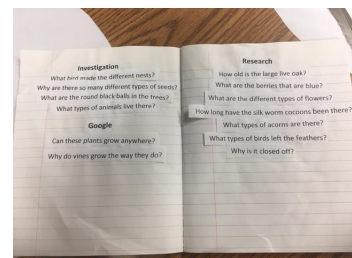 Investigation
What bird made the different nests?
Why are there so many different types of seeds?
What are the round black balls in the trees?
What types of animals live there?
Google
Can these plants grow anywhere?
Why do vines grow the way they do?
Research
How old is the large live oak?
What are the berries that are blue?
What are the different types of flowers?
How long have the silk worm cocoons been there?
What types of acorns are there?
What types of birds left the feathers?
Why is it closed off?